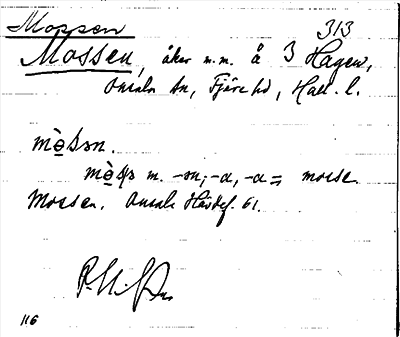 Mossen 313
Mossen, åker m.m. å 3 Hagen,
Onsala sn, Fjäre hd, Hall. l.
mò̱sən.
mò̱s m. -ən; -a, -a = mosse.
Mossen. Onsala Hävdef. 61.
116